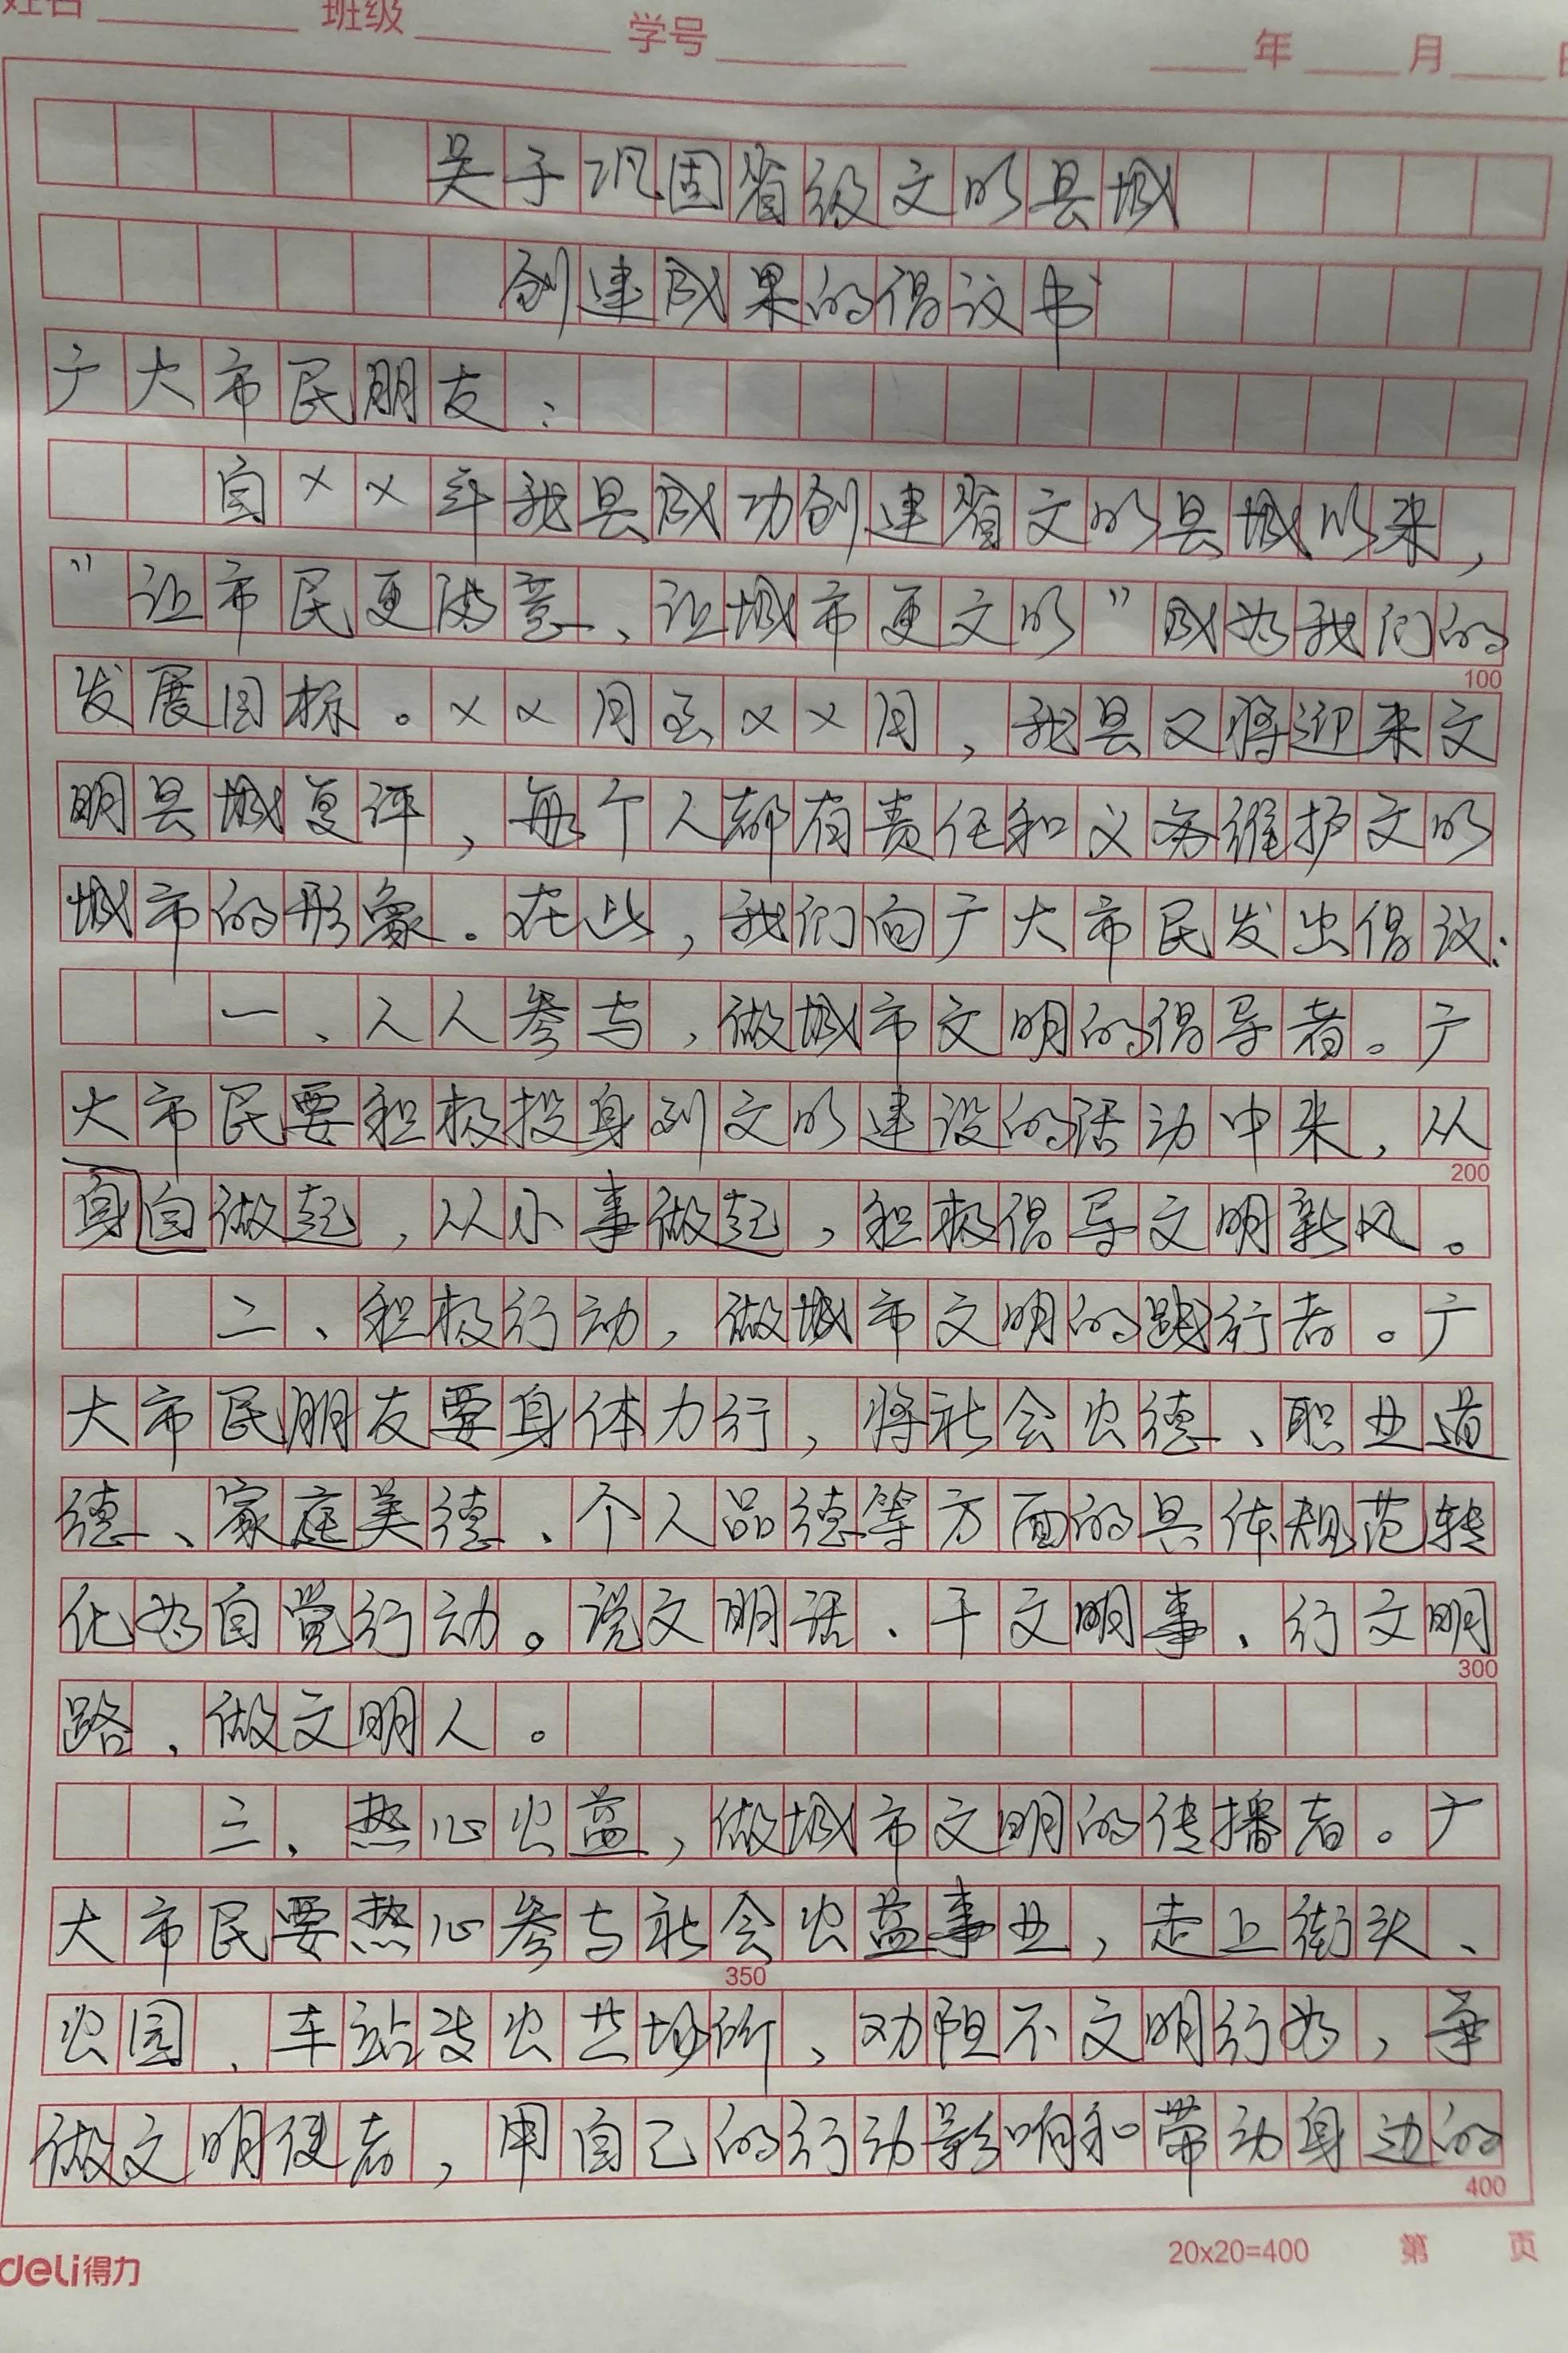 姓名 班级 学号 年 月 日
关于巩固省级文明县城
创建成果的倡议书
广大市民朋友：
自××年我县成功创建省文明县城以来，
"让市民更满意、让城市更文明"成为我们的
100
发展目标。××月至××月，我县又将迎来文
明县城复评，每个人都有责任和义务维护文明
城市的形象。在此，我们向广大市民发出倡议：
一、人人参与，做城市文明的倡导者。广
大市民要积极投身到文明建设的活动中来，从
200
身自做起，从小事做起，积极倡导文明新风。
二、积极行动，做城市文明的践行者。广
大市民朋友要身体力行，将社会公德、职业道
德、家庭美德、个人品德等方面的具体规范转
化为自觉行动。说文明话、干文明事、行文明
300
路、做文明人。
三、热心公益，做城市文明的传播者。广
大市民要热心参与社会公益事业，走上街头、
350
公园、车站及公共场所、劝阻不文明行为，争
做文明使者，用自己的行动影响和带动身边的
400
deli得力 20x20=400 第 页